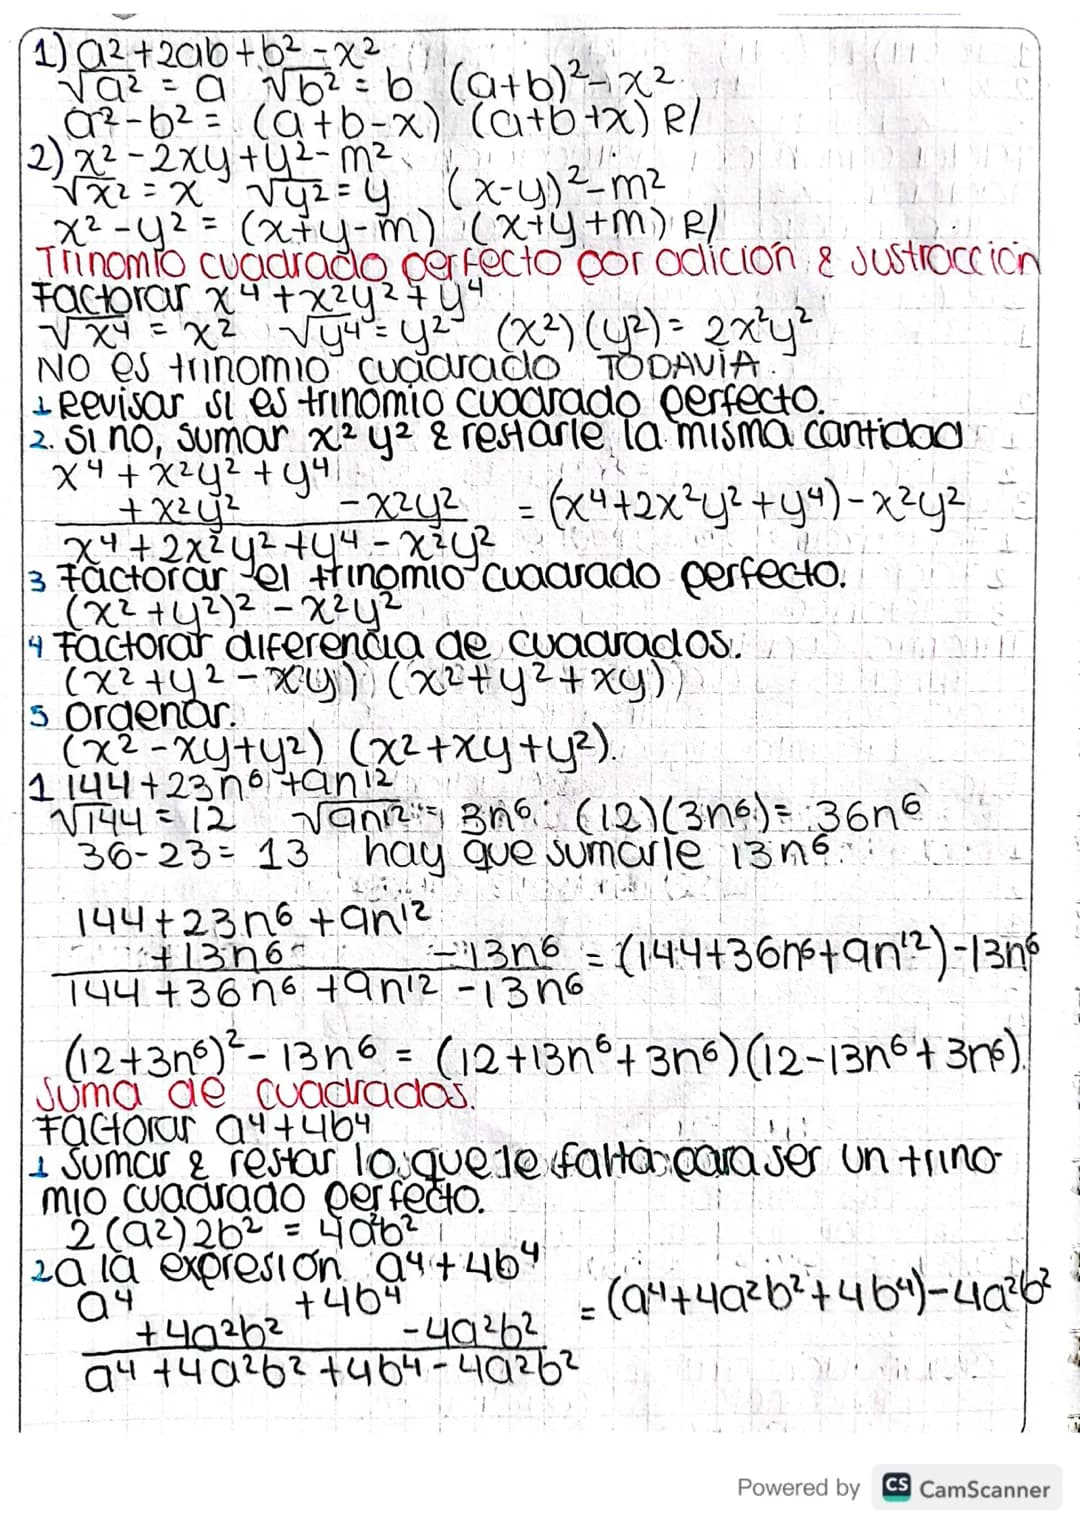 1) a² + 2ab + b² - x²
√a² = a √b² = b (a+b)² - x²
a² - b² = (a+b-x) (a+b+x) R/
2) x² - 2xy + y² - m²
√x² = x √y² = y (x-y)² - m²
x² - y² = (x+y-m) (x+y+m) R/
Trinomio cuadrado perfecto por adición & sustracción
Factorar x⁴ + x²y² + y⁴
√x⁴ = x² √y⁴ = y² (x²)(y²) = 2x²y²
NO es trinomio cuadrado TODAVÍA.
1 Revisar si es trinomio cuadrado perfecto.
2. Si no, sumar x² y² & restarle la misma cantidad
x⁴ + x²y² + y⁴
+ x²y² - x²y² = (x⁴+2x²y²+y⁴) - x²y²
x⁴ + 2x²y² + y⁴ - x²y²
3 Factorar el trinomio cuadrado perfecto.
(x² + y²)² - x²y²
4 Factorar diferencia de cuadrados.
(x² + y² - xy) (x² + y² + xy)
5 Ordenar.
(x² - xy + y²) (x² + xy + y²).
1 144 + 23n⁶ + 9n¹²
√144 = 12 √9n¹² = 3n⁶ (12)(3n⁶) = 36n⁶
36 - 23 = 13 hay que sumarle 13n⁶.
144 + 23n⁶ + 9n¹²
+ 13n⁶ - 13n⁶ = (144+36n⁶+9n¹²) - 13n⁶
144 + 36n⁶ + 9n¹² - 13n⁶
(12+3n⁶)² - 13n⁶ = (12+13n⁶+3n⁶)(12-13n⁶+3n⁶).
Suma de cuadrados.
Factorar a⁴ + 4b⁴
1 Sumar & restar lo que le falta para ser un trino-
mio cuadrado perfecto.
2(a²)2b² = 4a²b²
2 a la expresión a⁴ + 4b⁴
a⁴ + 4b⁴ = (a⁴+4a²b²+4b⁴) - 4a²b²
+ 4a²b² - 4a²b²
a⁴ + 4a²b² + 4b⁴ - 4a²b²
Powered by CS CamScanner